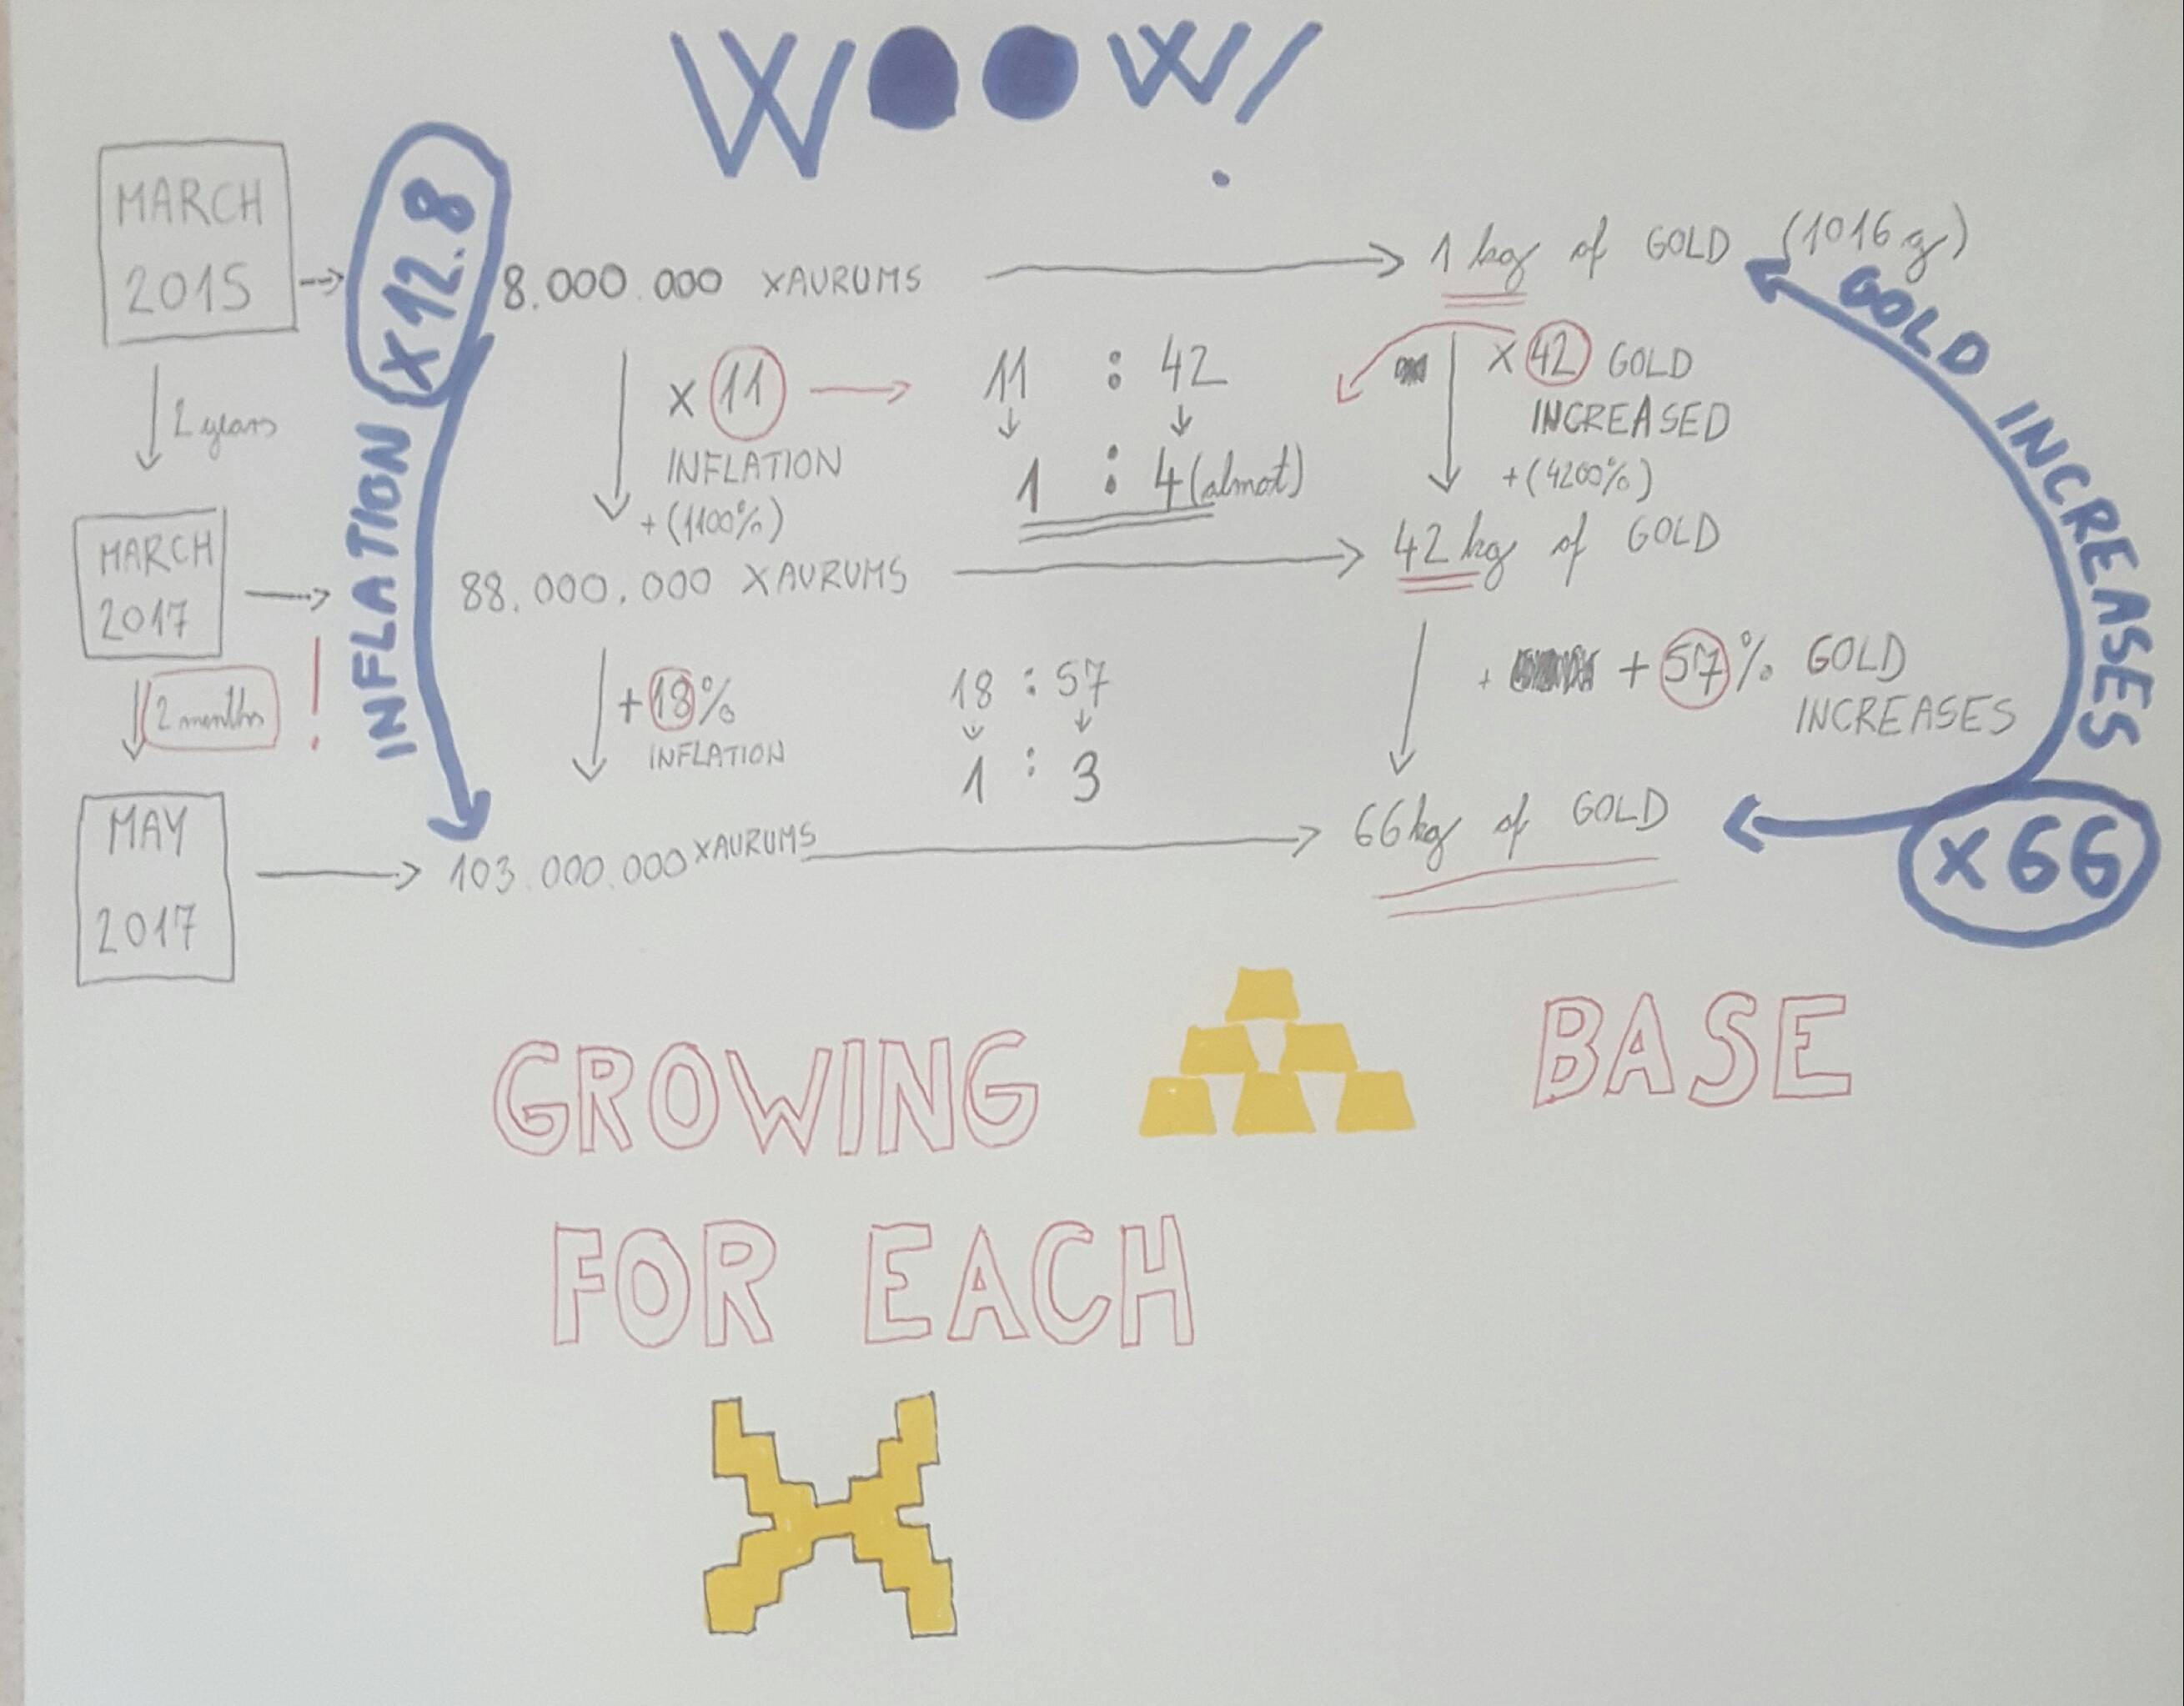 WOOW!
MARCH
2015
X12.8
8.000.000 XAURUMS
1 kg of GOLD (1016 g)
2 years
X 11
INFLATION
+(1100%)
11 : 42
1 : 4 (almot)
X 42 GOLD
INCREASED
+(4200%)
MARCH
2017
88.000.000 XAURUMS
42 kg of GOLD
2 months
!
INFLATION
+18%
INFLATION
18 : 57
1 : 3
+ + 57% GOLD
INCREASES
GOLD INCREASES
MAY
2017
103.000.000 XAURUMS
66 kg of GOLD
X66
GROWING BASE
FOR EACH